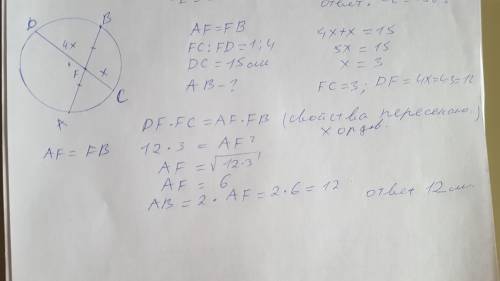 ответ
D
B
4x
F
x
C
AF=FB
FC:FD=1:4
DC=15см
AB-?
4x+x=15
5x=15
x=3
FC=3; DF=4x=4·3=12
DF·FC=AF·FB (свойства пересекающ.)
хордов.
AF=FB
12·3=AF²
AF=√12·3
AF=6
AB=2·AF=2·6=12
ответ 12см.